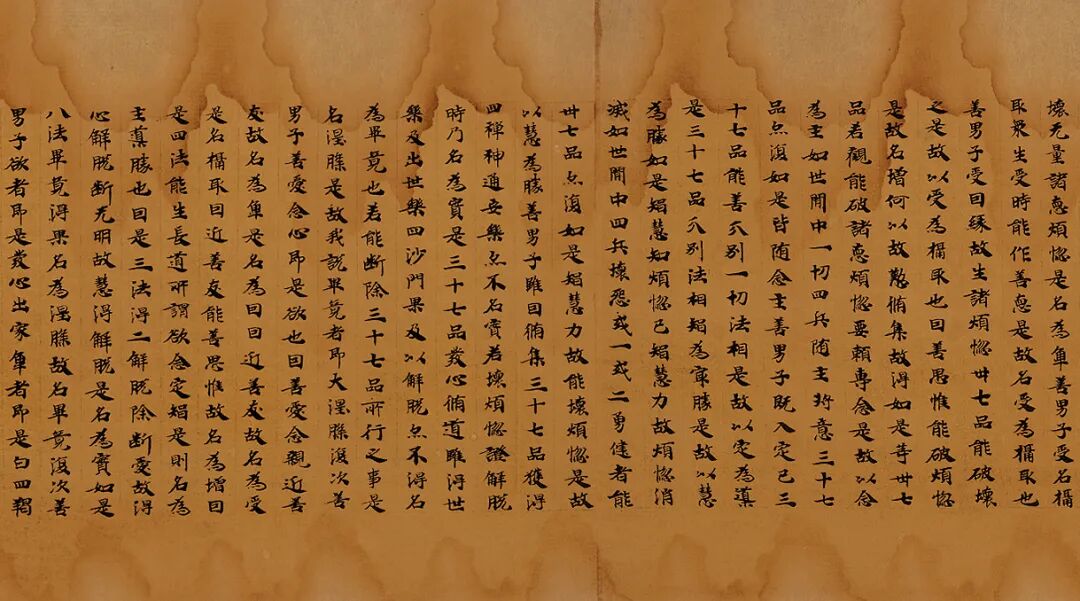 壞无量諸惡煩惱是名為觸善男子受名攝
取衆生受時能作善惡是故名受為攝取也
善男子受因緣故生諸煩惱卅七品能破壞
之是故以受為攝取也因善思惟能破煩惱
是故名增何以故懃脩集故得如是等卅七
品若觀能破諸惡煩惱要賴專念是故以念
為主如世間中一切四兵随主將意三十七
品亦復如是皆随念主善男子既入定已三
十七品能善分別一切法相是故以定為導
是三十七品分別法相智為㝡勝是故以慧
為勝如是智慧知煩惱已智慧力故煩惱消
滅如世間中四兵壞怨或一或二勇健者能
卅七品亦復如是智慧力故能壞煩惱是故
以慧為勝善男子雖因脩集三十七品獲得
四禪神通安樂亦不名實若壞煩惱證解脫
時乃名為實是三十七品發心脩道雖得世
樂及出世樂四沙門果及以解脫亦不得名
為畢竟也若能斷除三十七品所行之事是
名涅槃是故我說畢竟者即大涅槃復次善
男子善愛念心即是欲也因善愛念親近善
友故名為觸是名為因因近善友故名為受
是名攝取因近善友能善思惟故名為增因
是四法能生長道所謂欲念定智是則名為
主導勝也因是三法得二解脫除斷愛故得
心解脫斷无明故慧得解脫是名為實如是
八法畢竟得果名為涅槃故名畢竟復次善
男子欲者即是發心出家觸者即是白四羯